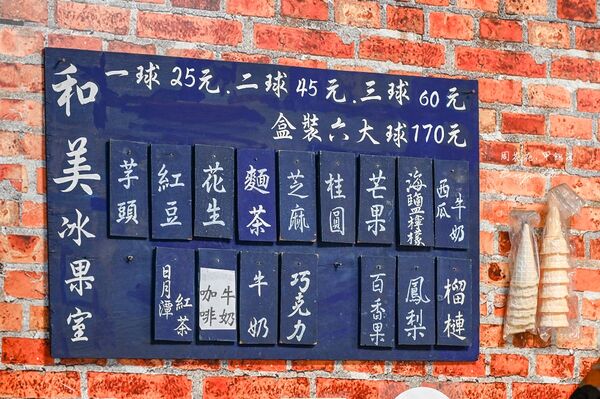 和美冰果室
一球25元.二球45元.三球60元
盒裝六大球170元
芋頭
紅豆
花生
麵茶
芝麻
桂圓
芒果
海鹽檸檬
西瓜牛奶
日月潭紅茶
咖啡牛奶
牛奶
巧克力
百香果
鳳梨
榴槤